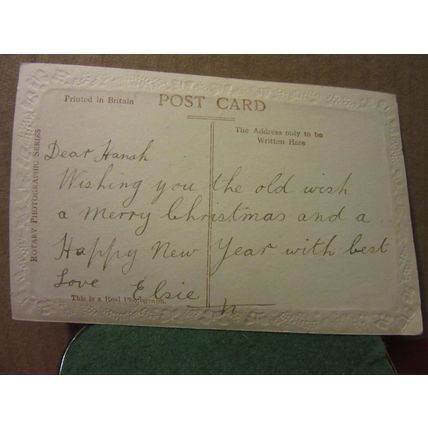 Printed in Britain
POST CARD
The Address only to be
Written Here
ROTARY PHOTOGRAPHIC SERIES
Dear Hanah
Wishing you the old wish
a Merry Christmas and a
Happy New Year with best
Love Elsie
This is a Real Photograph.